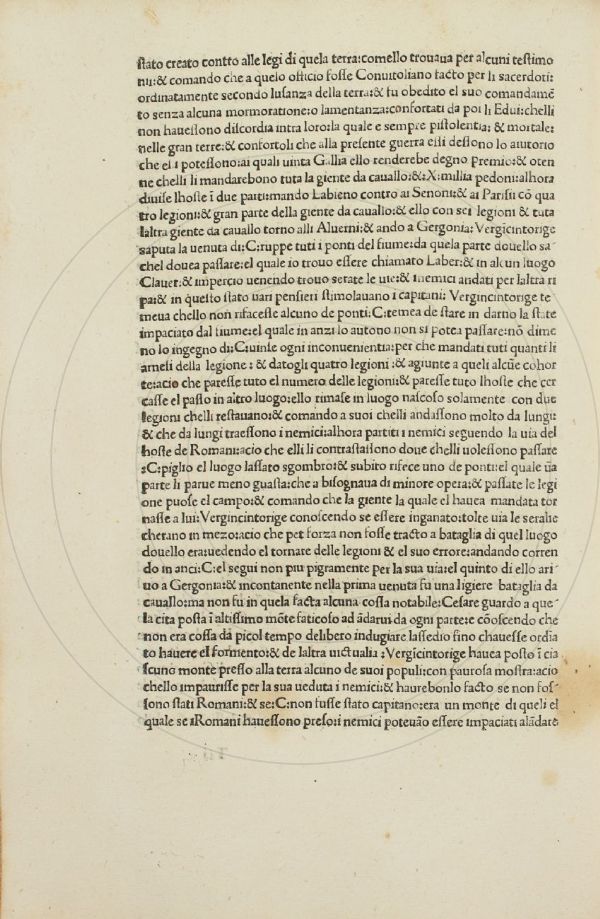 ſtato creato contro alle legi di quela terra:comello trouaua per alcuni teſtimo
nii:& comando che a quelo officio foſſe Conuitoliano facto per li ſacerdoti:
ordinatamente secondo luſanza della terra:& fu obedito el suo comandamē
to senza alcuna mormoratione:o lamentanza:confortati da poi li Edui:chelli
non haueſſono diſcordia intra loro:la quale e sempre piſtolentia: & mortale:
nelle gran terre:& confortoli che alla preſente guerra eſſi deſſono lo aiutorio
che eſſi poteſſono:ai quali uinta Gallia ello renderebe degno premio:& oten
ne chelli li mandarebono tuta la giente da cauallo:&:X:millia pedoni:alhora
diuiſe lhoſte ī due parti:mando Labieno contro ai Senoni:& ai Pariſii cō qua
tro legioni:& gran parte della giente da cauallo:& ello con sei legioni & tuta
laltra giente da cauallo torno alli Aluerni:& ando a Gergonia: Vergicintorige
saputa la uenuta di:C:ruppe tuti i ponti del fiume:da quela parte douello sa
chel douea paſſare:el quale io trouo eſſere chiamato Laber:& in alcun luogo
Clauer:& impercio uenendo trouo serate le uie:& i nemici andati per laltra ri
pa:& in queſto ſtato uari penſieri ſtimolauano i capitani: Vergincintorige te
meua chello non rifaceſſe alcuno de ponti:C:temea de ſtare in darno la ſtate
impaciato dal fiume:el quale in anzi lo autono non si potea paſſare:nō dime
no lo ingegno di:C:uinſe ogni inconuenientia:per che mandati tuti quanti li
arneſi della legione : & datogli quatro legioni :& agiunte a queli alcūe cohor
te:acio che pareſſe tuto el numero delle legioni:& pareſſe tuto lhoſte che cer
caſſe el paſſo in altro luogo:ello rimaſe in luogo naſcoſo solamente con due
legioni chelli reſtauano:& comando a suoi chelli andaſſono molto da lungi:
& che da lungi traeſſono i nemici:alhora partiti i nemici seguendo la uia del
hoſte de Romani:acio che elli li contraſtaſſono doue chelli uoleſſono paſſare
:C:piglio el luogo laſſato sgombro:& subito rifece uno de ponti:el quale ūa
parte li parue meno guaſta:che a biſognaua di minore opera:& paſſate le legi
one puoſe el campo:& comando che la giente la quale el hauea mandata tor
naſſe a lui:Vergincintorige conoſcendo se eſſere inganato:tolte uia le seralie
cherano in mezo:acio che per forza non foſſe tracto a bataglia di quel luogo
douello era:uedendo el tornare delle legioni & el suo errore:andando corren
do in anci:C:el segui non piu pigramente per la sua uia:el quinto di ello ari
uo a Gergonia:& incontanente nella prima uenuta fu una ligiere bataglia da
cauallo:ma non fu in quela facta alcuna coſſa notabile:Ceſare guardo a que
la cita poſta ī altiſſimo mōte faticoſo ad ādarui da ogni parte:e cōoſcendo che
non era coſſa da picol tempo delibero indugiare laſſedio fino chaueſſe ordīa
to hauere el formento:& de laltra uictualia :Vergicintorige hauea poſto ī cia
ſcuno monte preſſo alla terra alcuno de suoi populi:con pauroſa moſtra:acio
chello impauriſſe per la sua ueduta i nemici:& haurebonlo facto se non foſ
ſono ſtati Romani:& se:C:non fuſſe ſtato capitano:era un monte di queli el
quale se i Romani haueſſono preſo:i nemici poteuāo eſſere impaciati alādare: